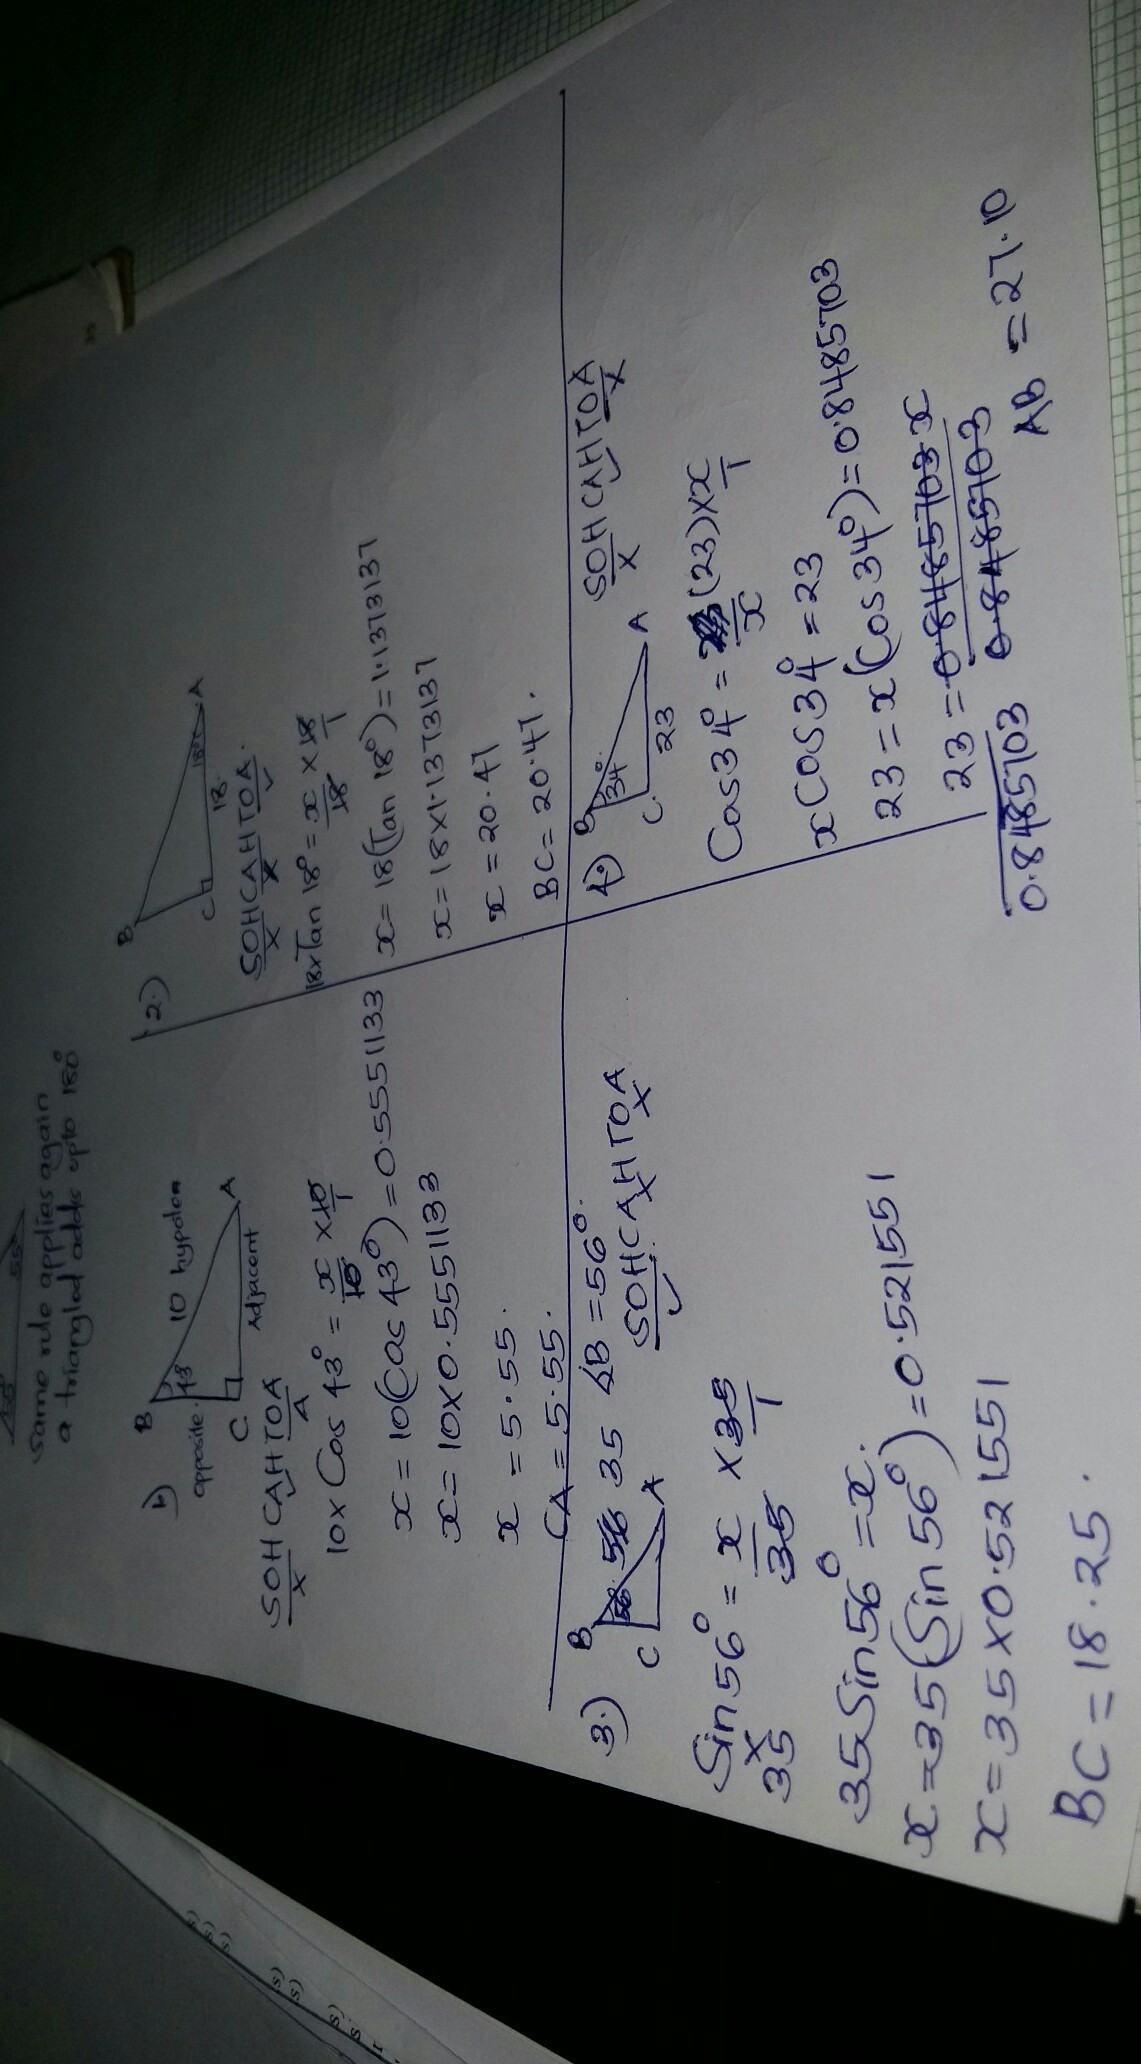 55°
Same rule applies again
a triangled adds upto 180°
1)
B
43°
10 hypoten
opposite.
C
Adjacent
A
SOH CAH TOA
x
A
10 x Cos 43° = x x 10
10 1
x = 10(Cos 43°) = 0.5551133
x = 10 x 0.5551133
x = 5.55.
CA = 5.55.
2.)
B
C
18
18°
A
SOH CAH TOA.
x x
18x Tan 18° = x x 18
18 1
x = 18(Tan 18°) = 1.1373137
x = 18 x 1.1373137
x = 20.47
BC = 20.47.
3.)
B
56°
56 35
C
A
∠B = 56°.
SOH CAH TOA
x x
Sin 56° = x x 35
x 35 1
35
35 Sin 56° = x.
x = 35(Sin 56°) = 0.521551
x = 35 x 0.521551
BC = 18.25.
4.)
B
34°
C
23
A
SOH CAH TOA
x x
Cos 34° = (23) x x
x 1
x Cos 34° = 23
23 = x(Cos 34°) = 0.8485703
23 = 0.8485703 x
0.8485703 0.8485703
AB = 27.10